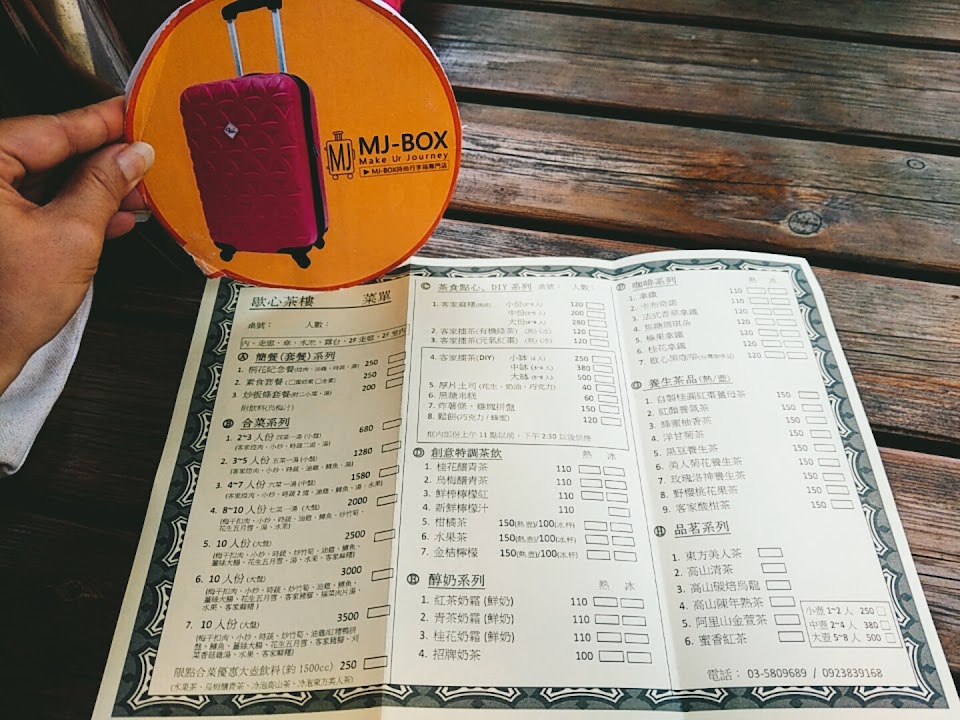 MJ-BOX
Make Ur Journey
MJ-BOX時尚行李箱專門店
MJ
歇心茶樓 菜單
桌號： 人數：
內、走廊、傘、水池、露台、2F走廊、2F室內
Ⓐ 簡餐(套餐)系列
1. 桐花紀念餐 250
2. 素食套餐 250
3. 炒粄條套餐 200
附飲料(烏梅汁)
Ⓑ 合菜系列
1. 2~3 人份 四菜一湯(小盤) 680
2. 3~5 人份 五菜一湯(小盤) 1280
3. 4~7 人份 六菜一湯(中盤) 1580
4. 8~10 人份 七菜一湯(大盤) 2000
5. 10 人份(大盤) 2500
6. 10 人份(大盤) 3000
7. 10 人份(大盤) 3500
限點合菜優惠大壺飲料(約 1500cc) 250
(水果茶、烏梅醋青茶、冷泡高山茶、冷泡東方美人茶)
Ⓒ 茶食點心、DIY 系列 桌號： 人數：
1. 客家麻糬 小份 120
中份 200
大份 280
2. 客家擂茶(有機綠茶) (熱/冰) 120
3. 客家擂茶(元氣紅棗) (熱/冰) 120
4. 客家擂茶(DIY) 小缽 250
中缽 380
大缽 500
5. 厚片土司(花生、奶油、巧克力) 40
6. 黑糖米糕 60
7. 炸薯條、雞塊拼盤 150
8. 鬆餅(巧克力/蜂蜜) 120
框內部份上午 11 點以前，下午 2:30 以後供應
Ⓓ 創意特調茶飲 熱 冰
1. 桂花釀青茶 110
2. 烏梅醋青茶 110
3. 鮮檸檸檬紅 110
4. 新鮮檸檬汁 110
5. 柑橘茶 150(熱壺)/100(冰杯)
6. 水果茶 150(熱壺)/100(冰杯)
7. 金桔檸檬 150(熱壺)/100(冰杯)
Ⓔ 醇奶系列 熱 冰
1. 紅茶奶霜 (鮮奶) 110
2. 青茶奶霜 (鮮奶) 110
3. 桂花奶霜 (鮮奶) 110
4. 招牌奶茶 100
Ⓕ 咖啡系列 熱 冰
1. 拿鐵 110
2. 卡布奇諾 120
3. 法式香草拿鐵 120
4. 焦糖瑪琪朵 120
5. 榛果拿鐵 120
6. 桂花拿鐵 120
7. 歇心黑咖啡 120
Ⓖ 養生茶品(熱/壺)
1. 自製桂圓紅棗薑母茶 150
2. 紅顏養氣茶 150
3. 蜂蜜柚香茶 150
4. 洋甘菊茶 150
5. 黑豆養生茶 150
6. 美人菊花養生茶 150
7. 玫瑰洛神養生茶 150
8. 野櫻桃花果茶 150
9. 客家酸柑茶 150
Ⓗ 品茗系列
1. 東方美人茶
2. 高山清茶
3. 高山碳焙烏龍
4. 高山陳年熟茶
5. 阿里山金萱茶
6. 蜜香紅茶
小壺 1~2 人 250
中壺 2~4 人 380
大壺 5~8 人 500
電話： 03-5809689 / 0923839168